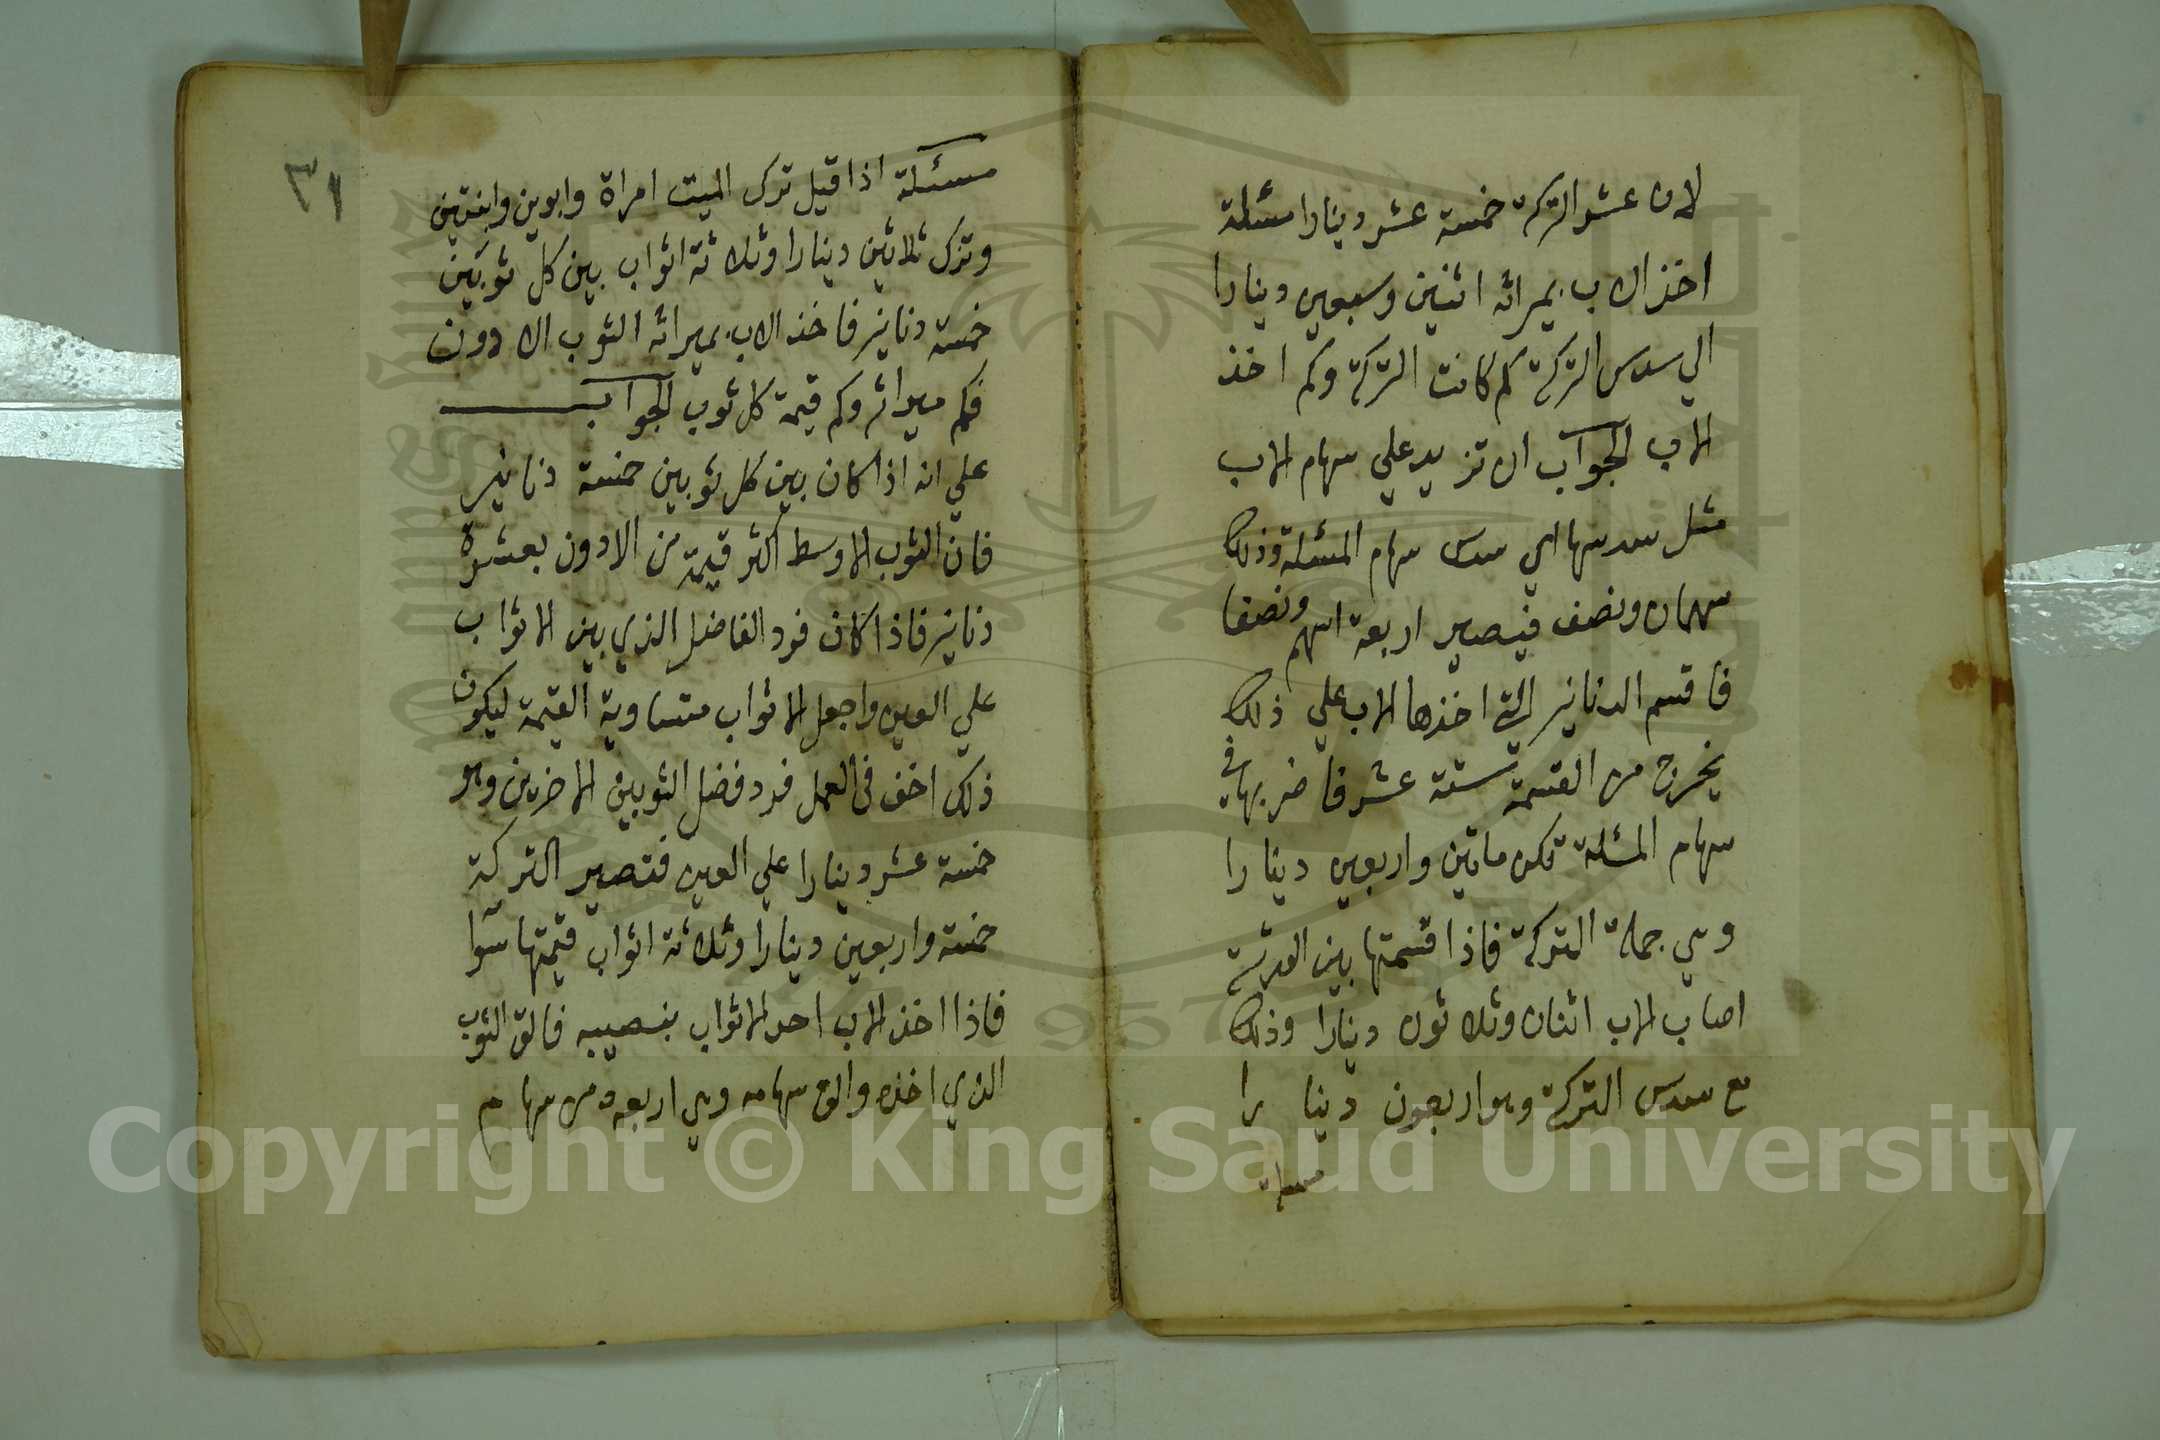 لان عشر التركة خمسة عشر دينارا مسئلة
اخذ الاب بميراثه اثنين وسبعين دينارا
الي سدس التركة كم كانت التركة وكم اخذ
الاب الجواب ان تزيد علي سهام الاب
مثل سدسها اي سدس سهام المسئلة وذلك
سهمان ونصف فيصير اربعة اسهم ونصفا
فاقسم الدنانير التي اخذها الاب علي ذلك
يخرج من القسمة ستة عشر فاضربها في
سهام المسئلة تكن ماتين واربعين دينارا
وهي جملة التركة فاذا قسمتها بين الورثة
اصاب الاب اثنان وثلاثون دينارا وذلك
مع سدس التركة وهو اربعون دينارا
مسئلة
٣١
مسئلة اذا قيل ترك الميت امراة وابوين وابنتين
وترك ثلاثين دينارا وثلاثة اثواب بين كل ثوبين
خمسة دنانير فاخذ الاب بميراثه الثوب الادون
فكم ميراثه وكم قيمة كل ثوب الجواب
علي انه اذا كان بين كل ثوبين خمسة دنانير
فان الثوب الاوسط اكثر قيمة من الادون بعشرة
دنانير فاذا كان فرد الفاضل الذي بين الاثواب
علي العين واجعل الاثواب متساوية القيمة ليكون
ذلك اخف في العمل فرد فضل الثوبين الاخرين وهو
خمسة عشر دينارا علي العين فتصير التركة
خمسة واربعين دينارا وثلاثة اثواب قيمتها سوا
فاذا اخذ الاب احد الاثواب بنصيبه فالق الثوب
الذي اخذه والق سهامه وهي اربعة من سهام
Copyright © King Saud University
1957